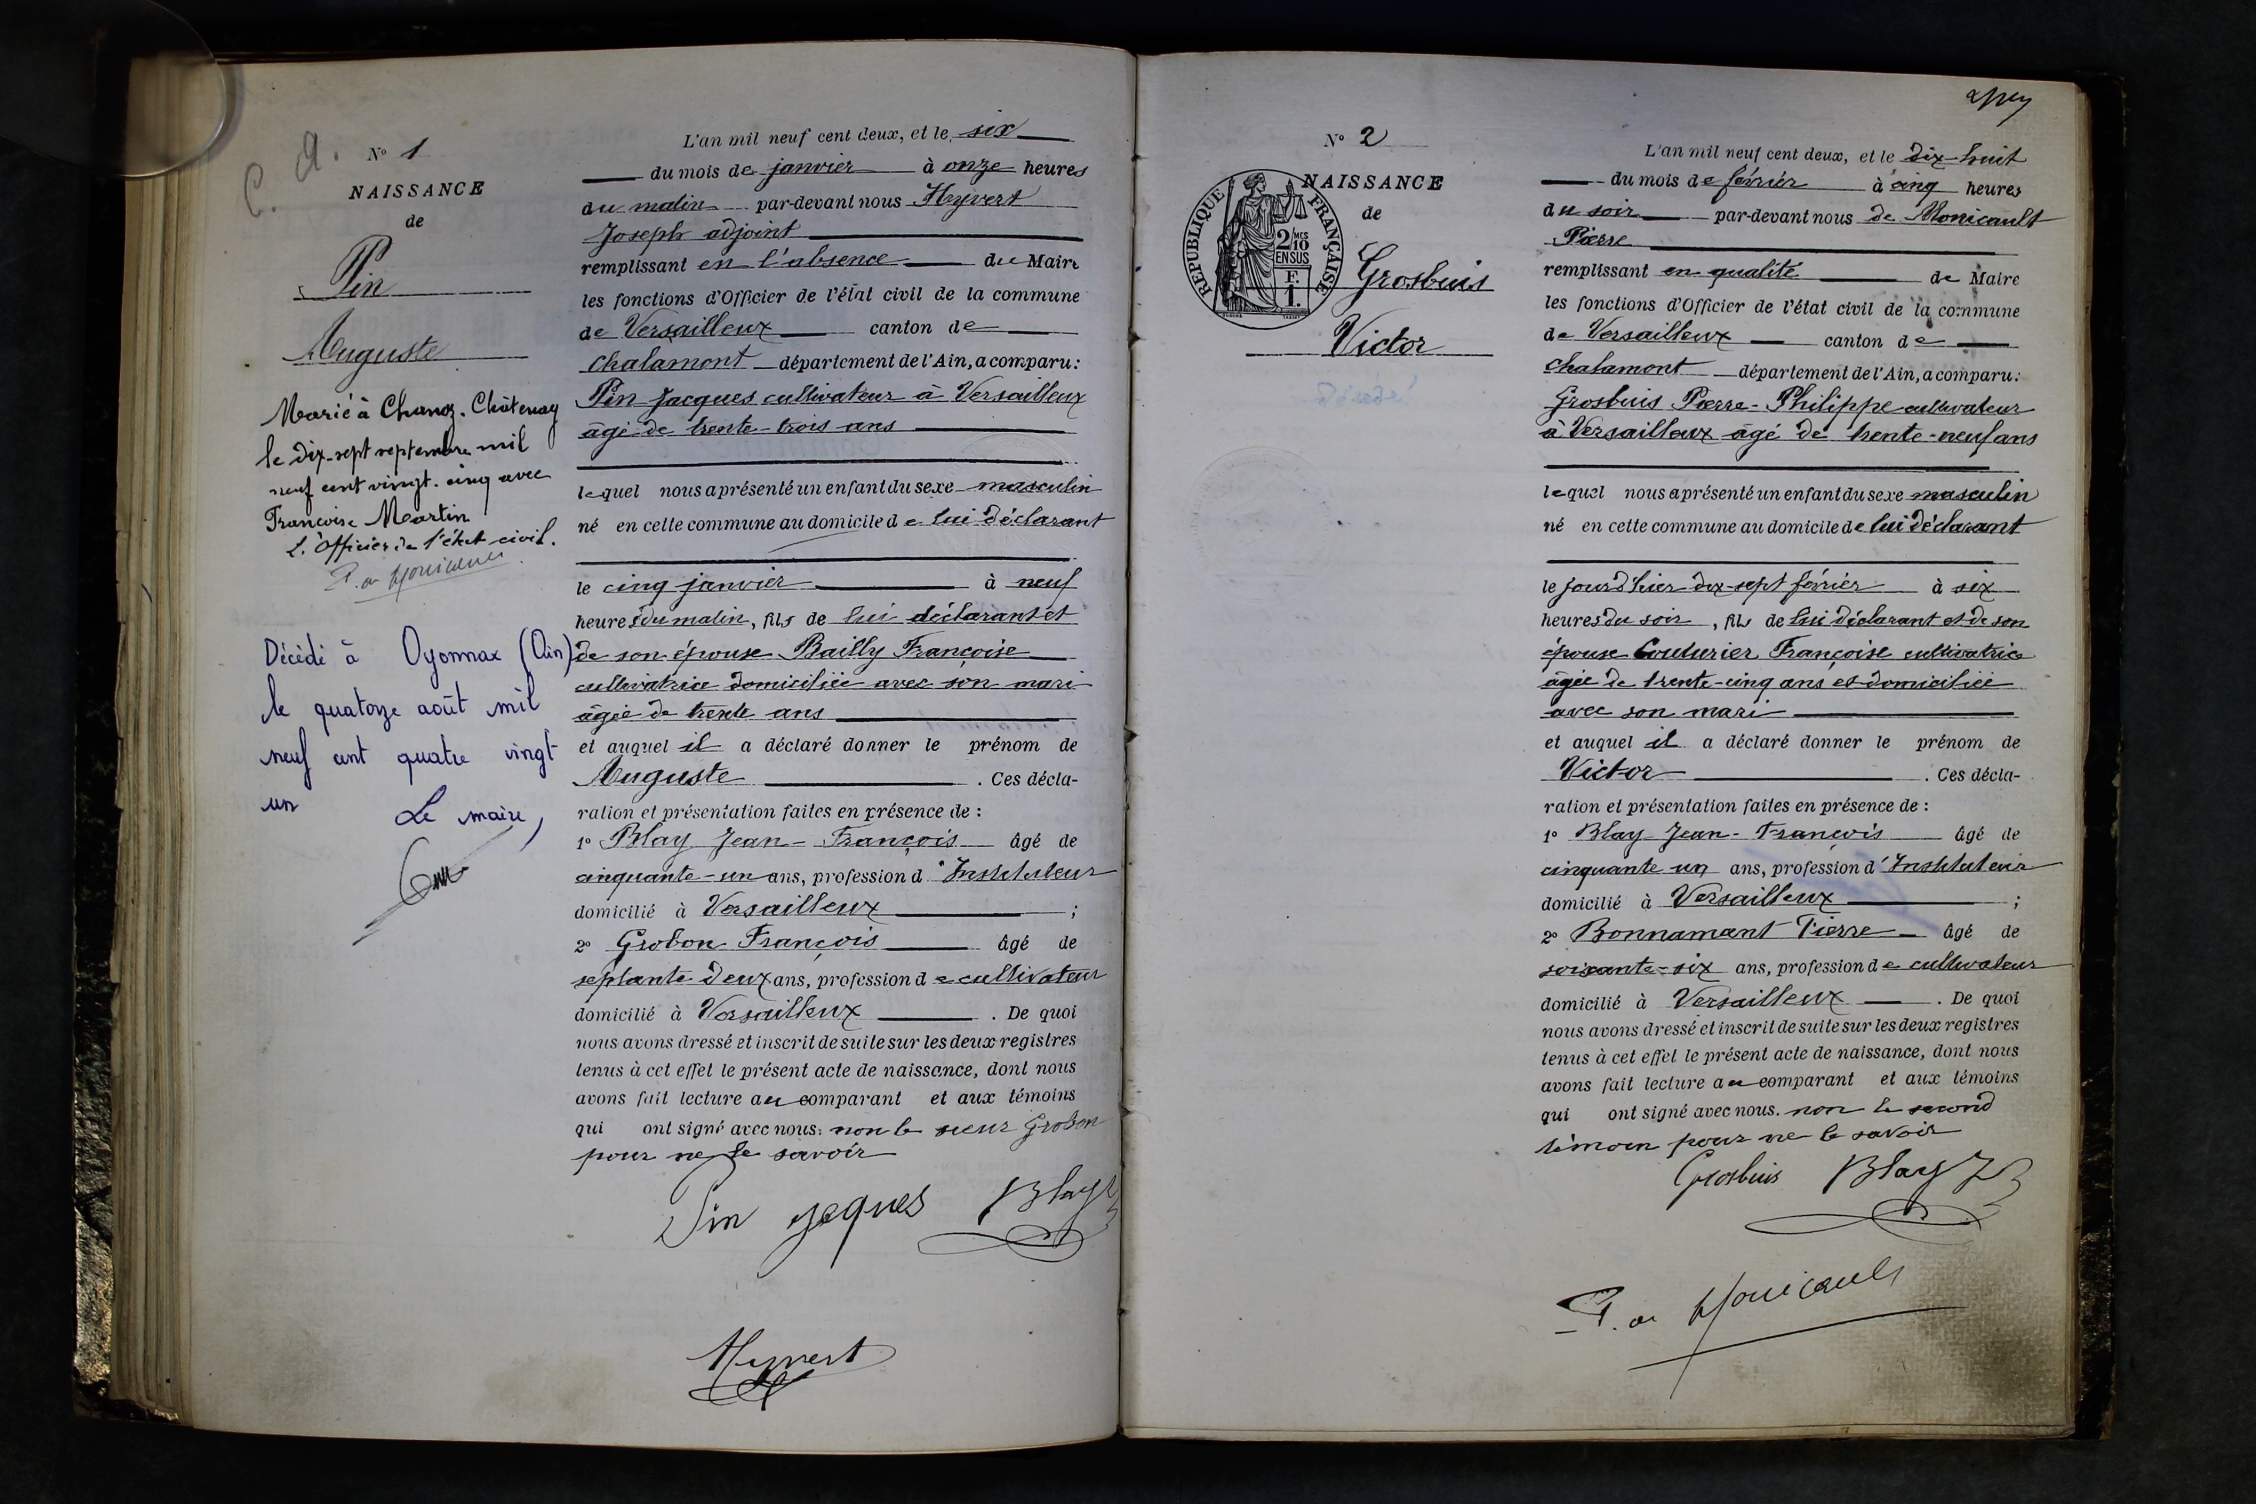 C. A.
N° 1
NAISSANCE
de
Pin
Auguste
Marié à Chanoz-Châtenay
le dix-sept septembre mil
neuf cent vingt-cinq avec
Françoise Martin
L'officier de l'état civil.
P. de Monicault
Décédé à Oyonnax (Ain)
le quatorze août mil
neuf cent quatre vingt
un
Le maire,
L'an mil neuf cent deux, et le six
du mois de janvier à onze heures
du matin par-devant nous Hyvert
Joseph adjoint
remplissant en l'absence du Maire
les fonctions d'Officier de l'état civil de la commune
de Versailleux canton de
Chalamont département de l'Ain, a comparu:
Pin Jacques cultivateur à Versailleux
âgé de trente-trois ans
lequel nous a présenté un enfant du sexe masculin
né en cette commune au domicile de lui déclarant
le cinq janvier à neuf
heures du matin, fils de lui déclarant et
de son épouse Bailly Françoise
cultivatrice domiciliée avec son mari
âgée de trente ans
et auquel il a déclaré donner le prénom de
Auguste . Ces décla-
ration et présentation faites en présence de :
1° Blay Jean-François âgé de
cinquante-un ans, profession d'Instituteur
domicilié à Versailleux ;
2° Grobon François âgé de
septante-deux ans, profession de cultivateur
domicilié à Versailleux . De quoi
nous avons dressé et inscrit de suite sur les deux registres
tenus à cet effet le présent acte de naissance, dont nous
avons fait lecture au comparant et aux témoins
qui ont signé avec nous: non le sieur Grobon
pour ne le savoir
Pin jaques Blay J
Hyvert
N° 2
NAISSANCE
de
RÉPUBLIQUE FRANÇAISE
2/10 MES
EN SUS
F.
1.
Grosbuis
Victor
L'an mil neuf cent deux, et le dix-huit
du mois de février à cinq heures
du soir par-devant nous de Monicault
Pierre
remplissant en qualité de Maire
les fonctions d'Officier de l'état civil de la commune
de Versailleux canton de
Chalamont département de l'Ain, a comparu:
Grosbuis Pierre-Philippe cultivateur
à Versailleux âgé de trente-neuf ans
lequel nous a présenté un enfant du sexe masculin
né en cette commune au domicile de lui déclarant
le jour d'hier dix-sept février à six
heures du soir, fils de lui déclarant et de son
épouse Couturier Françoise cultivatrice
âgée de trente-cinq ans et domiciliée
avec son mari
et auquel il a déclaré donner le prénom de
Victor . Ces décla-
ration et présentation faites en présence de :
1° Blay Jean-François âgé de
cinquante-un ans, profession d'Instituteur
domicilié à Versailleux ;
2° Bonnamant Pierre âgé de
soixante-six ans, profession de cultivateur
domicilié à Versailleux . De quoi
nous avons dressé et inscrit de suite sur les deux registres
tenus à cet effet le présent acte de naissance, dont nous
avons fait lecture au comparant et aux témoins
qui ont signé avec nous. non le second
témoin pour ne le savoir
Grosbuis Blay J
P. de Monicault